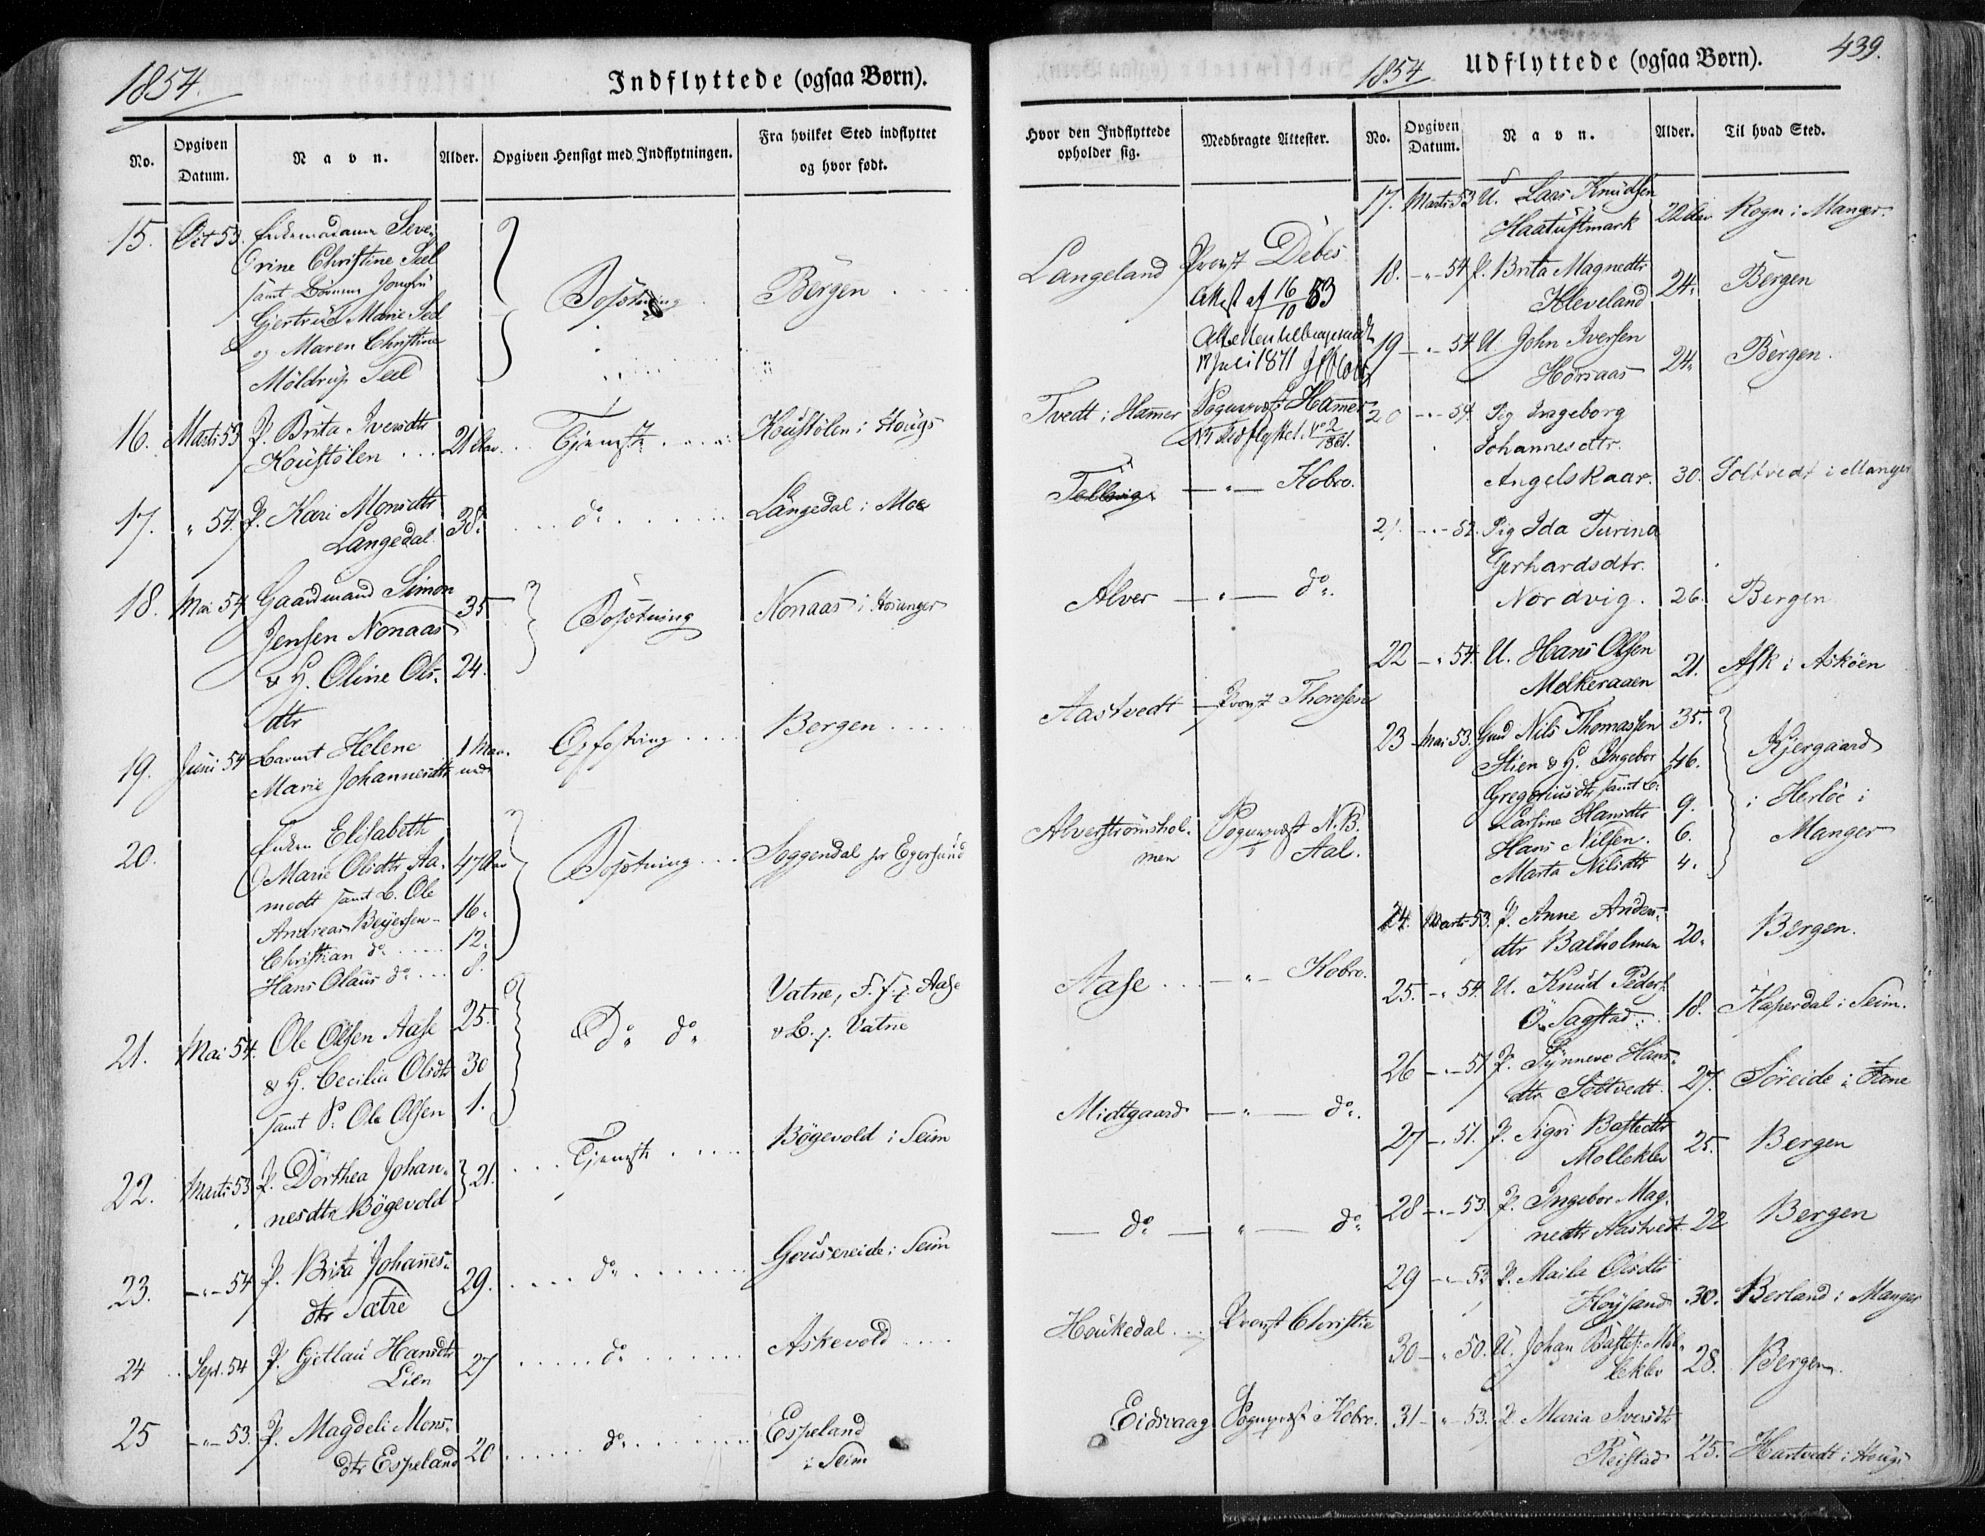 1854.
Indflyttede (ogsaa Børn).
No.
Opgiven
Datum.
Navn.
Alder.
Opgiven Hensigt med Indflytningen.
Fra hvilket Sted indflyttet
og hvor født.
15. Oct 53. Enkemadame Seve-
rine Christine Seel
samt Børnene Jomfru
Gjertrud Marie Seel
og Maren Christine
Möldrup Seel
Bosætning
Bergen
16. Marti 53 P. Brita Iversdtr
Koustölen 21 Aar Tjeneste Koustölen i Hougs
17. " 54. P. Kari Monsdtr
Langedal 38. do Langedal i Moe
18. Mai 54. Gaardmand Simon
Jensen Nonaas 35
& H. Oline Ols- 24.
dtr
Bosætning
Nonaas i Hosanger
19. Juni 54 Barnet Helene
Marie Johannesdtr 1 Maa-
ned Opfostring Bergen
20. Enken Elisabeth
Marie Olsdtr Aa- 47 Aar
modt samt B. Ole
Andreas Beyersen 16.
Christian do 12.
Hans Olaus do 8.
Bosætning
Soggendal pr Egersund
21. Mai 54. Ole Olsen Aase 25.
& H. Cecilia Olsdtr 30
samt S. Ole Olsen 1.
Do do
Vatne, F. f. p. Aase
& B. p. Vatne
22. Marti 53 P. Dorthea Johan-
nesdtr Bögevold 21. Tjeneste Bögevold i Seim
23. -"- 54 P. Brita Johannes-
dtr Sætre 29. do Geusereide i Seim
24 Sept. 54 P. Gjetlau Hansdtr
Lien 27 do Askevold
25 -"- 53. P. Magdeli Mons-
dtr Espeland 20 do Espeland
i Seim
1854
Udflyttede (ogsaa Børn).
439.
Hvor den Indflyttede
opholder sig.
Medbragte Attester.
No.
Opgiven
Datum.
Navn.
Alder.
Til hvad Sted.
Langeland Provst Debes
Attest af 16/10 53
17 Juli 1871
Tvedt i Hamer Sogneprest Hamer
Udflyttet No 2/1861.
Tellevig -"- Kobro.
Alver -"- do.
Aastvedt Provst Thoresen
Alverströmshol-
men Sogneprest N. B.
Aal.
Aase -"- Kobro.
Midtgaard -"- do.
do " do
Houkedal Provst Christie
Eidsvaag Sogneprest Kobro.
17. Marti 53 U. Lars Knudsen
Haatuftmark 22 Aar Rogn i Manger.
18. -"- 54 P. Brita Magnedtr
Kleveland 24. Bergen
19 -"- 54 U John Iversen
Horsaas 24. Bergen.
20 -"- 54. Pig Ingeborg
Johannesdtr.
Angelskaar. 30. Soltvedt i Manger
21. -"- 52. Pig Ida Turina
Gerhardsdtr.
Nordvig. 26. Bergen
22 -"- 54. U. Hans Olsen
Molkeraaen 21. Ask i Asköen
23 Mai 53. Gmd Nils Thomassen 35.
Stien & H. Ingebor 46.
Gregoriusdtr samt B.
Larsine Hansdtr 9.
Hans Nilsen. 6.
Marta Nilsdtr 4.
Kjergaard
i Herlöe i
Manger
24. Marti 53. P. Anne Anders-
dtr Balholmen 20. Bergen.
25. -"- 54. U. Knud Peders.
Ö. Sagstad 18. Kaperdal i Seim.
26 -"- 51 P. Synneve Hans-
dtr Soltvedt. 27. Söreide i Fane
27 -"- 51. P. Sigri Bastedtr
Molleklev 25. Bergen
28 -"- 53. P. Ingebor Mag-
nedtr Aastvedt 22 Bergen
29 -"- 53 P. Maila Olsdtr
Höysand 30. Berland i Manger
30 -"- 50. U. Johan Bastes. Mol-
leklev 28. Bergen.
31 -"- 53. P Maria Iversdtr
Reistad 25. Hartvedt i Hougs